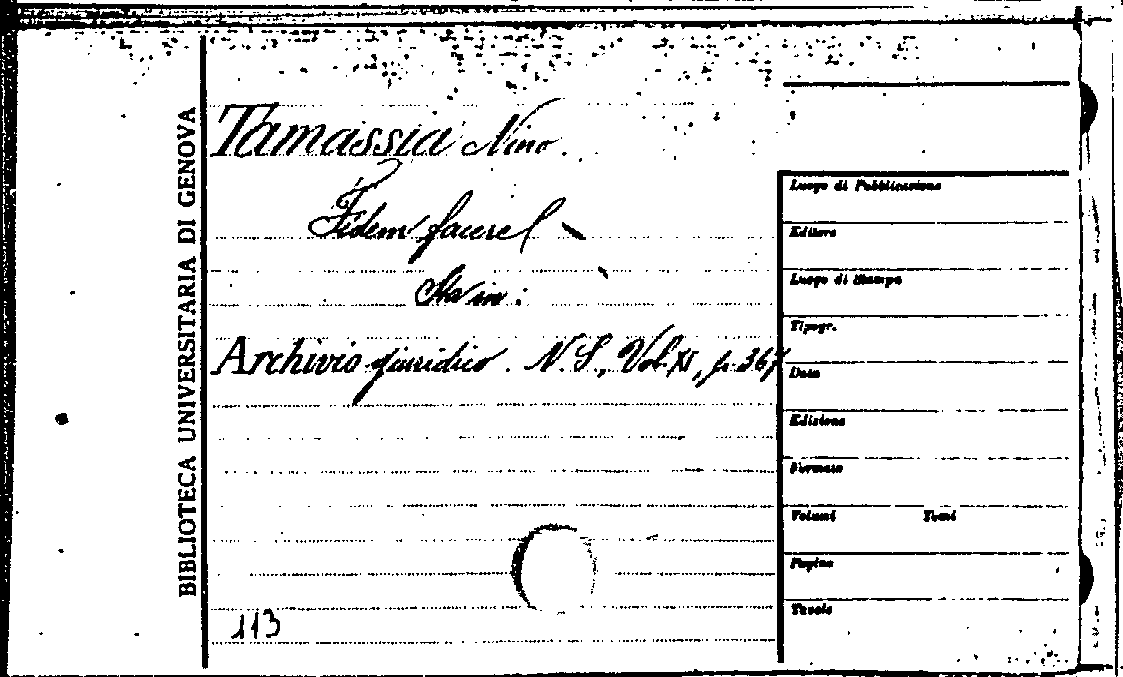 BIBLIOTECA UNIVERSITARIA DI GENOVA
Tamassia Nino.
Fidem facere
Sta in:
Archivio giuridico. N. S., Vol. XI, p. 367
113
Luogo di Pubblicazione
Editore
Luogo di Stampa
Tipogr.
Data
Edizione
Formato
Volumi Tomi
Pagine
Tavole